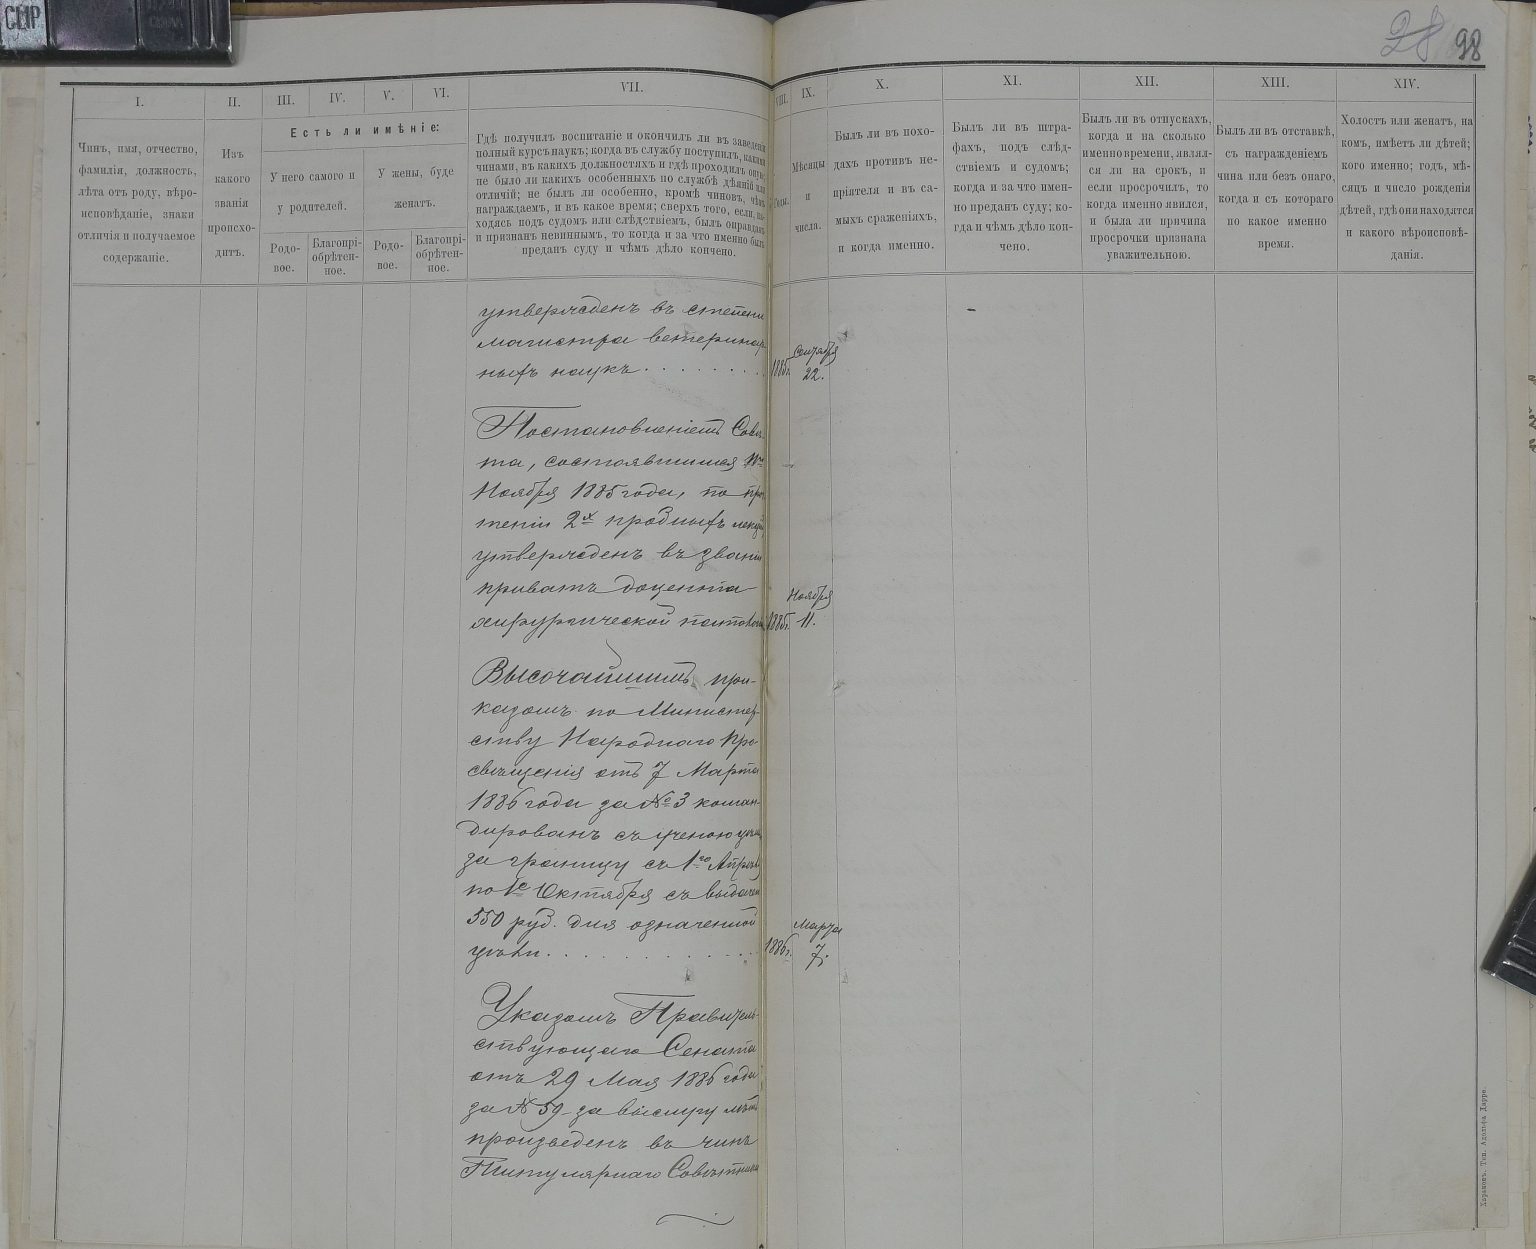 CLIP
28 98
I.
II.
III.
IV.
V.
VI.
VII.
VIII.
IX.
X.
XI.
XII.
XIII.
XIV.
Чинъ, имя, отчество,
фамилія, должность,
лѣта отъ роду, вѣро-
исповѣданіе, знаки
отличія и получаемое
содержаніе.
Изъ
какого
званія
происхо-
дитъ.
Есть ли имѣніе:
У него самого и
у родителей.
У жены, буде
женатъ.
Родо-
вое.
Благопрі-
обрѣтен-
ное.
Родо-
вое.
Благопрі-
обрѣтен-
ное.
Гдѣ получилъ воспитаніе и окончилъ ли въ заведеніи
полный курсъ наукъ; когда въ службу поступилъ, какими
чинами, въ какихъ должностяхъ и гдѣ проходилъ оную;
не было ли какихъ особенныхъ по службѣ дѣяній или
отличій; не былъ ли особенно, кромѣ чиновъ, чѣмъ
награждаемъ, и въ какое время; сверхъ того, если, на-
ходясь подъ судомъ или слѣдствіемъ, былъ оправданъ
и признанъ невиннымъ, то когда и за что именно былъ
преданъ суду и чѣмъ дѣло кончено.
Годы.
Мѣсяцы
и
числа.
Былъ ли въ похо-
дахъ противъ не-
пріятеля и въ са-
мыхъ сраженіяхъ,
и когда именно.
Былъ ли въ штра-
фахъ, подъ слѣд-
ствіемъ и судомъ;
когда и за что имен-
но преданъ суду; ко-
гда и чѣмъ дѣло кон-
чено.
Былъ ли въ отпускахъ,
когда и на сколько
именно времени, являл-
ся ли на срокъ, и
если просрочилъ, то
когда именно явился,
и была ли причина
просрочки признана
уважительною.
Былъ ли въ отставкѣ,
съ награжденіемъ
чина или безъ онаго,
когда и съ котораго
по какое именно
время.
Холостъ или женатъ, на
комъ, имѣетъ ли дѣтей;
кого именно; годъ, мѣ-
сяцъ и число рожденія
дѣтей, гдѣ они находятся
и какого вѣроисповѣ-
данія.
утвержденъ въ степени
магистра ветеринар-
ныхъ наукъ . . . . . . . .
1885г.
Сентября
22.
Постановленіемъ Совѣ-
та, состоявшимся 11го
Ноября 1885 года, по про-
чтеніи 2х пробныхъ лекцій
утвержденъ въ званіи
приватъ доцента
хирургической патологіи
1885г.
Ноября
11.
Высочайшимъ при-
казомъ по Министер-
ству Народнаго Про-
свѣщенія отъ 7 Марта
1886 года за № 3 коман-
дированъ съ ученою цѣлью
за границу съ 1го Апрѣля
по 1е Октября съ выдачею
550 руб. для означенной
цѣли . . . . . . . . . . . .
1886г.
Марта
7.
Указомъ Правитель-
ствующаго Сената
отъ 29 Мая 1886 года
за № 59 за выслугу лѣтъ
произведенъ въ чинъ
Титулярнаго Совѣтника
Харьковъ. Тип. Адольфа Дарре.